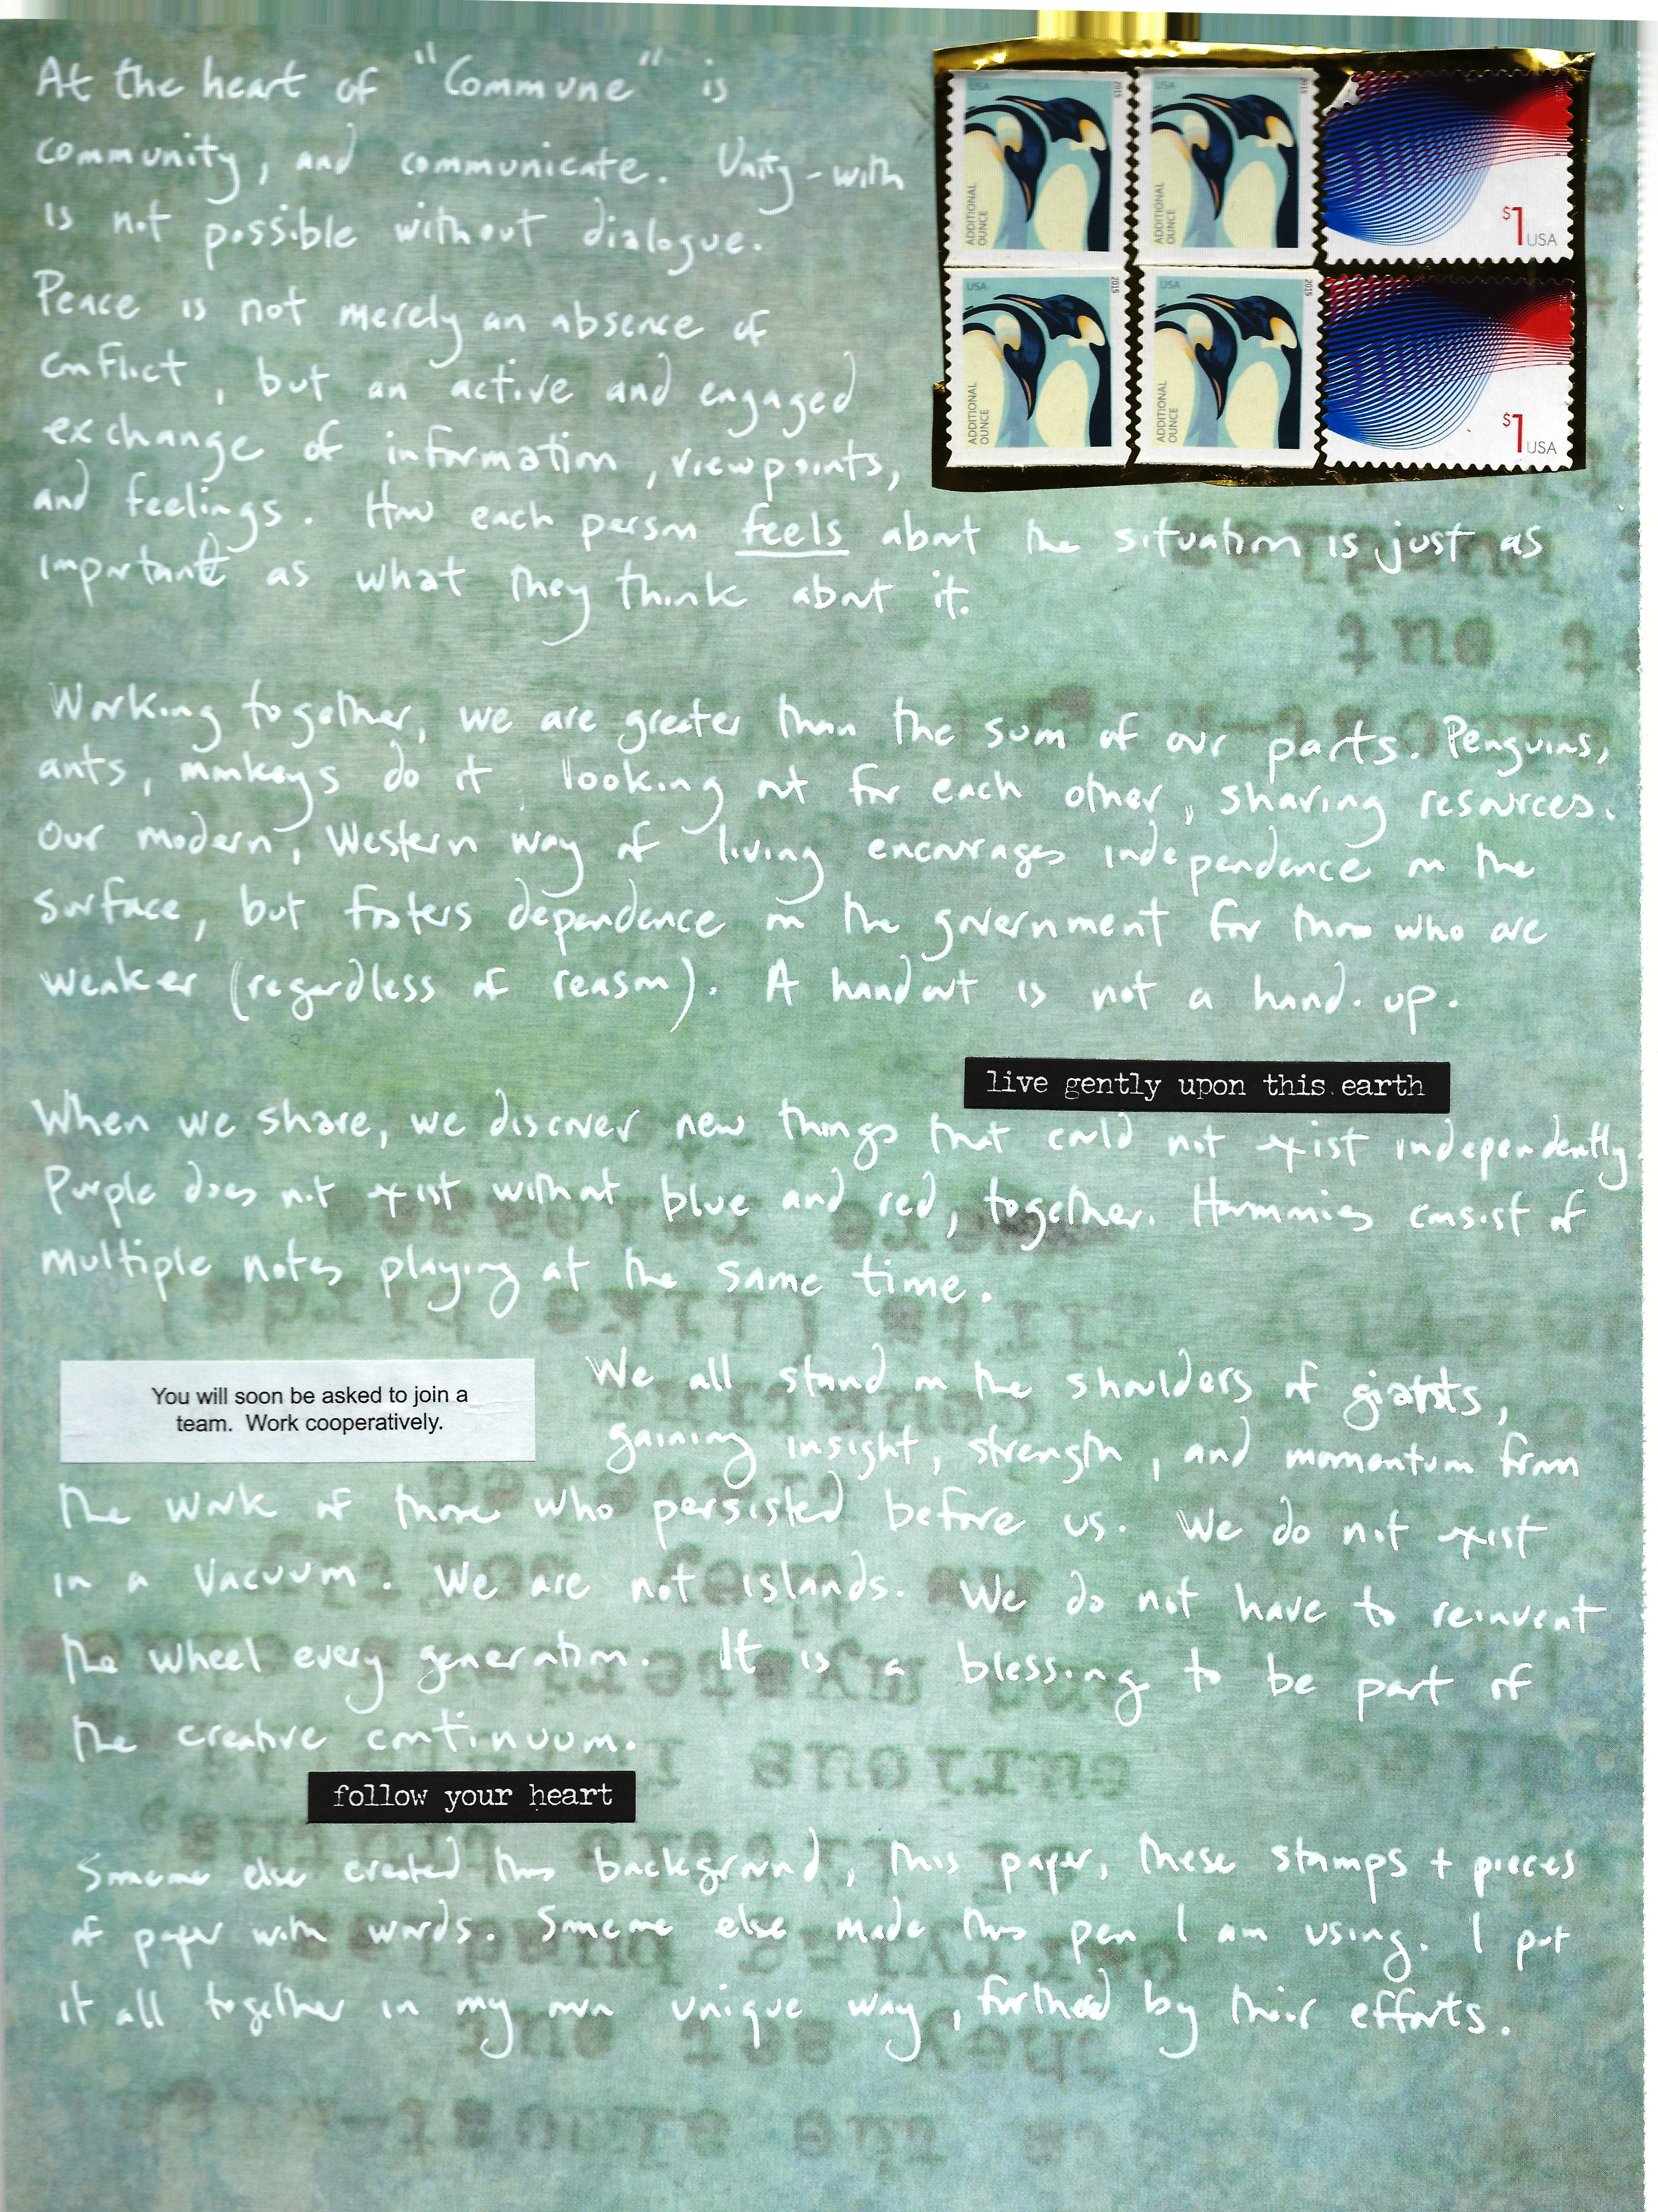 At the heart of "Commune" is
community, and communicate. Unity-with
is not possible without dialogue.
Peace is not merely an absence of
conflict, but an active and engaged
exchange of information, viewpoints,
and feelings. How each person feels about the situation is just as
important as what they think about it.
USA 2015
ADDITIONAL OUNCE
USA 2015
ADDITIONAL OUNCE
2015
$1 USA
USA 2015
ADDITIONAL OUNCE
USA 2015
ADDITIONAL OUNCE
$1 USA
Working together, we are greater than the sum of our parts. Penguins,
ants, monkeys do it, looking out for each other, sharing resources.
Our modern, Western way of living encourages independence on the
surface, but fosters dependence on the government for those who are
weaker (regardless of reason). A handout is not a hand-up.
live gently upon this earth
When we share, we discover new things that could not exist independently.
Purple does not exist without blue and red, together. Harmonies consist of
multiple notes playing at the same time.
You will soon be asked to join a
team. Work cooperatively.
We all stand on the shoulders of giants,
gaining insight, strength, and momentum from
the work of those who persisted before us. We do not exist
in a vacuum. We are not islands. We do not have to reinvent
the wheel every generation. It is a blessing to be part of
the creative continuum.
follow your heart
Someone else created this background, this paper, these stamps + pieces
of paper with words. Someone else made this pen I am using. I put
it all together in my own unique way, furthered by their efforts.